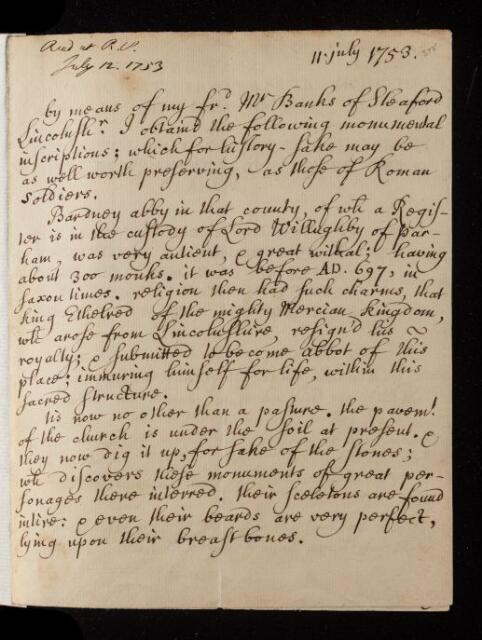 Read at R.S.
July 12. 1753
11. july 1753.
by means of my fr.d Mr Banks of Sleaford
Lincolnsh.r I obtaind the following monumental
inscriptions; which for history-sake may be
as well worth preserving, as those of Roman
soldiers.
Bardney abby in that county, of wh a Regis-
ter is in the custody of Lord Willughby of Par-
ham, was very antient, & great withal; having
about 300 monks. it was before AD. 697, in
saxon times. religion then had such charms, that
king Ethelred of the mighty Mercian kingdom,
wh arose from Lincolnshire, resign'd his ~
royalty; & submitted to become abbot of this
place; immuring himself for life, within this
sacred structure.
tis now no other than a pasture. the pavem.t
of the church is under the soil at present. &
they now dig it up, for sake of the stones;
wh discovers these monuments of great per-
sonages there interred. their sceletons are found
intire: & even their beards are very perfect,
lying upon their breast bones.